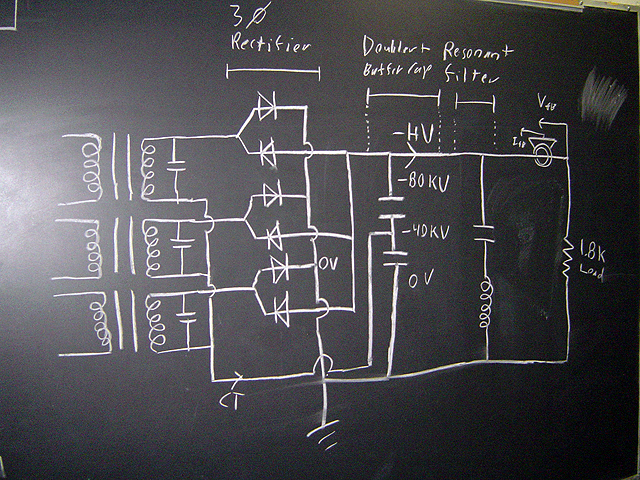 3Ø
Rectifier
Doubler +
Buffer Cap
Resonant
filter
-HV
-80KV
-40KV
0V
0V
1.8K
Load
CT